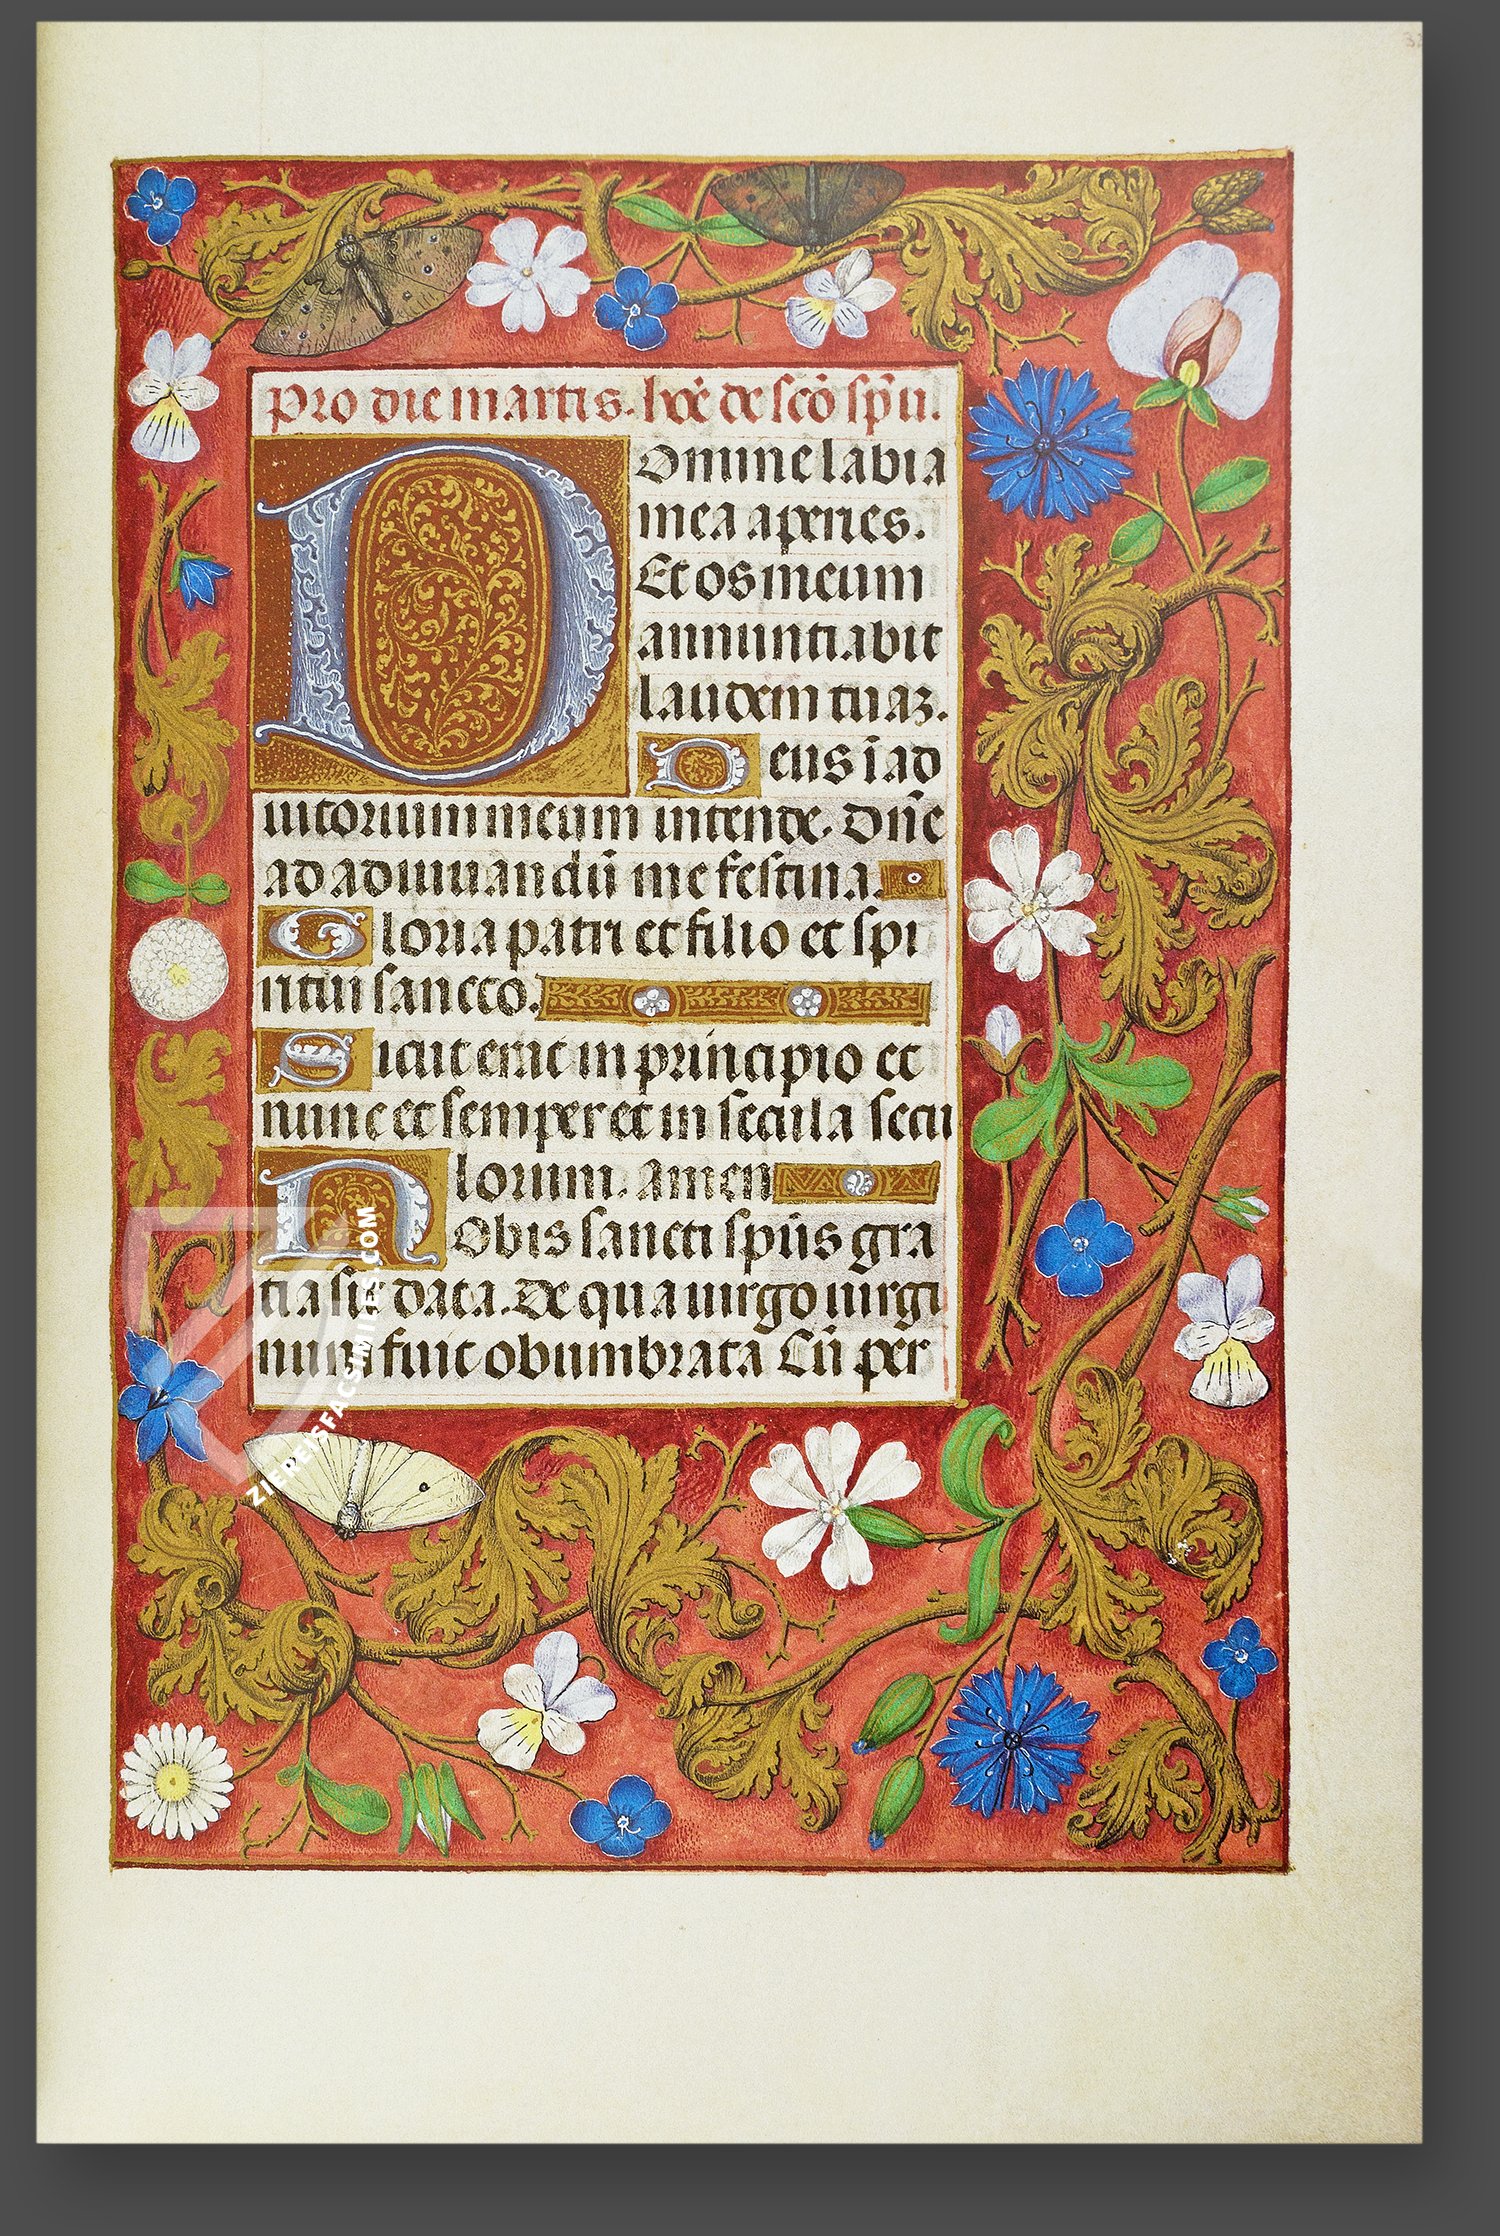 Pro die martis. hoē de scō spū.
Domine labia
mea aperies.
Et os meum
annuntiabit
laudem tuaꝫ.
Deus ī ad
iutorium meum intende. Dn̄e
ad adiuuandū me festina.
Gloria patri et filio et spi
ritui sancto.
Sicut erat in principio et
nunc et semper et in secula secu
lorum. amen
Nobis sancti sp̄us gra
tia sit data. De qua uirgo uirgi
num fuit obumbrata Cū per
ZIEREISFACSIMILES.COM